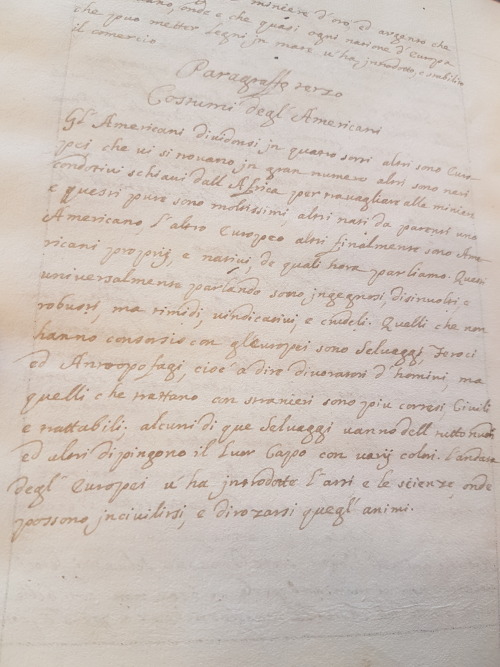 miniere d'oro, ed argento che
onde e che quasi ogni natione d'Europa
che puo metter legni in mare v'ha introdotto, e stabilito
il comercio
Paragraffo terzo
Costumi degl'Americani
Gl'Americani dividonsi in quatro sorti altri sono Euro-
pei che vi si trovano in gran numero altri sono neri
condotivi schiavi dall'Africa per travagliar alle miniere
e questi pure sono moltissimi, altri nati da parenti uno
Americano l'altro Europeo altri finalmente sono Ame-
ricani proprij, e nativi, de quali hora parliamo. Questi
universalmente parlando sono ingegnosi, disinvolti e
robusti, ma timidi, vindicativi, e crudeli. Quelli che non
hanno consorsio con gl'europei sono Selvaggi, Feroci
ed Antropofagi, cioe' a dire divoratori d'homini, ma
quelli che trattano con stranieri sono piu cortesi, Civili
e trattabili. alcuni di que Selvaggi vanno dell tutto nudi
ed altri dipingono il Luor Capo con varij colori. L'andata
degl'Europei v'ha introdotto l'arti e le scienze, onde
possono incivilirsi, e dirozarsi quegl'animi.